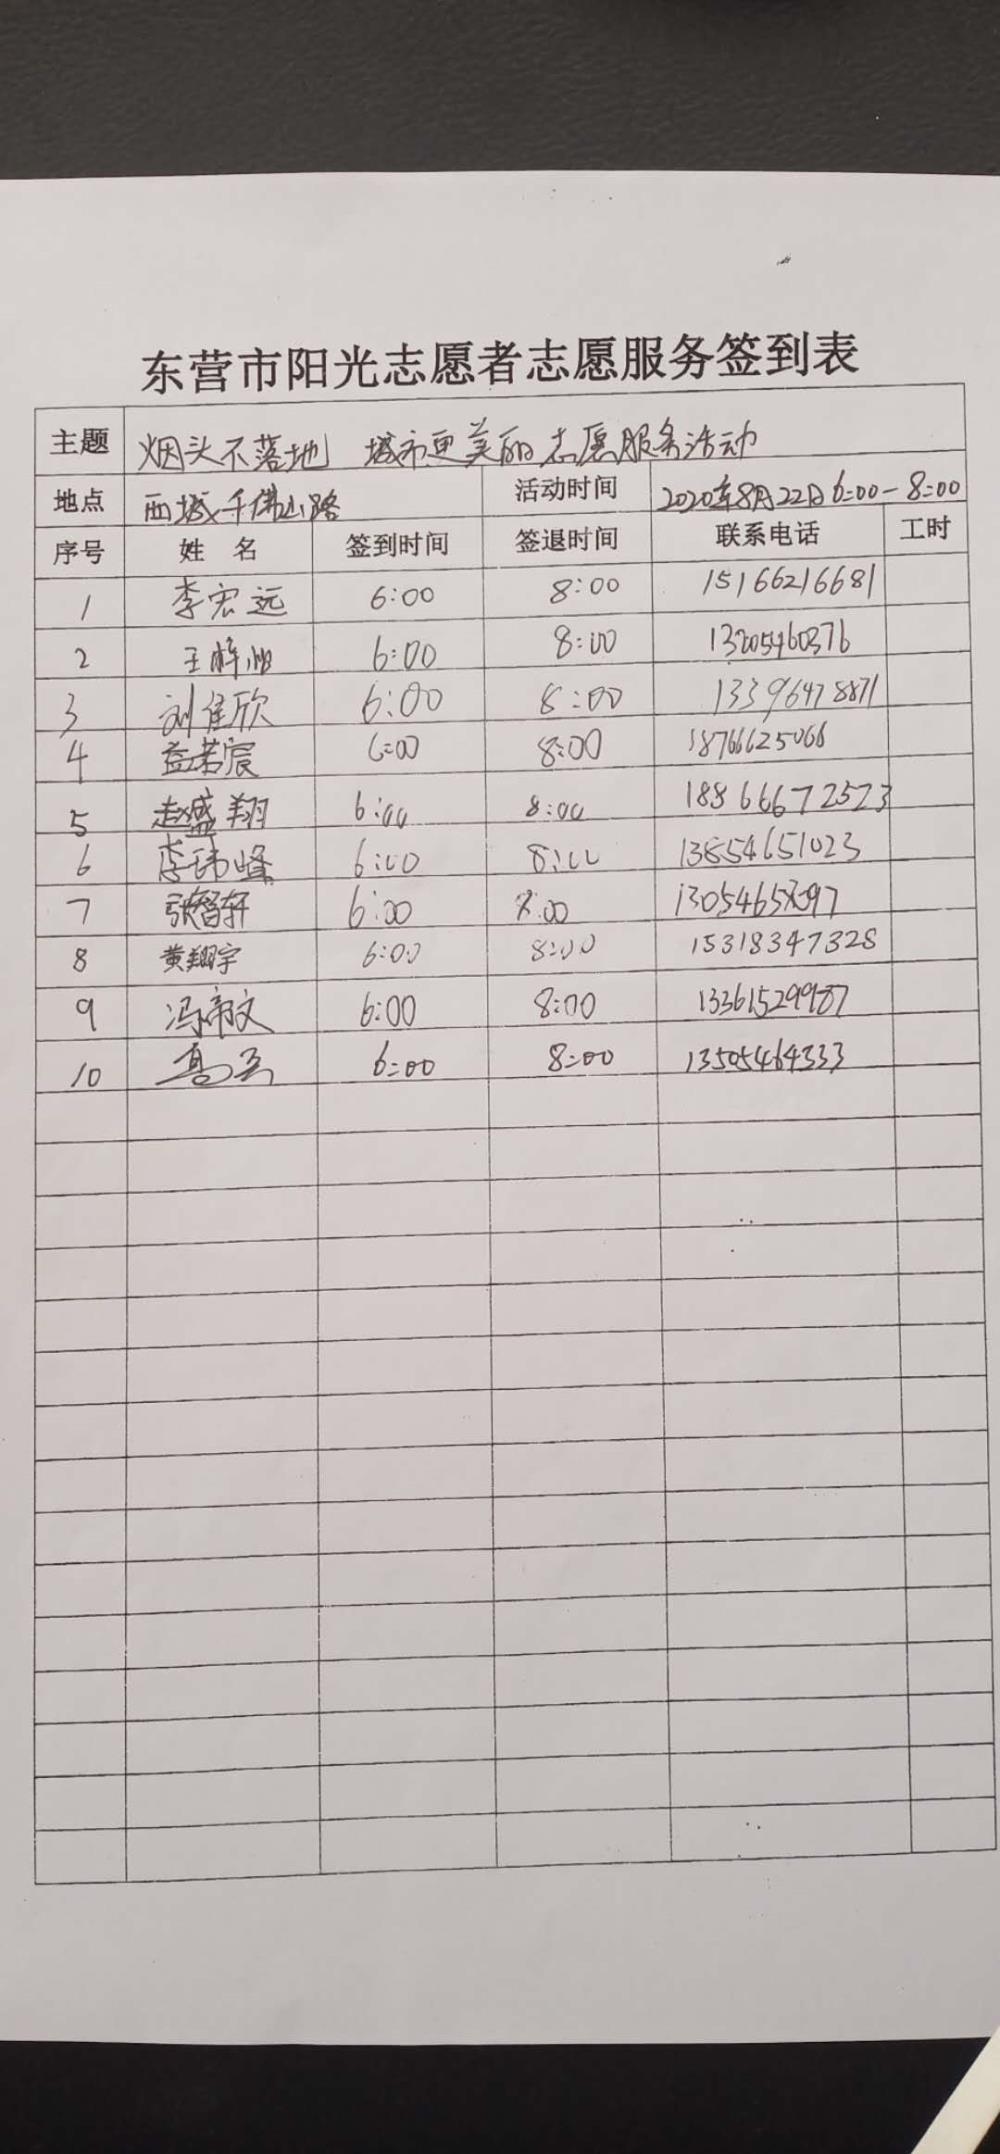 东营市阳光志愿者志愿服务签到表
主题 烟头不落地 城市更美丽志愿服务活动
地点 西城千佛山路 活动时间 2020年8月22日6:00-8:00
序号 姓名 签到时间 签退时间 联系电话 工时
1 李宏远 6:00 8:00 15166216681
2 王 6:00 8:00 13205460376
3 刘佳欣 6:00 8:00 13396478871
4 益若宸 6:00 8:00 18766625066
5 赵盛翔 6:00 8:00 18866672523
6 李玮峰 6:00 8:00 13854651023
7 张智轩 6:00 8:00
8 黄翔宇 6:00 8:00 15318347328
9 冯帝文 6:00 8:00 13361529987
10 高 6:00 8:00 13505464333